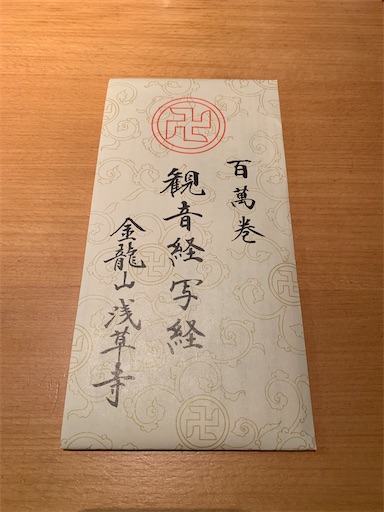 百萬巻
観音経写経
金龍山浅草寺